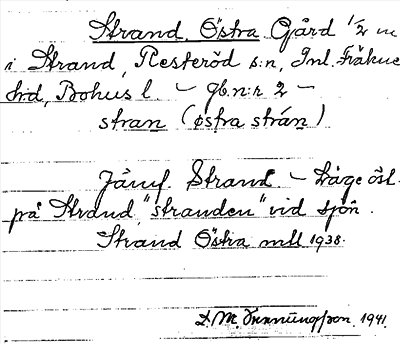 Strand, Östra Gård 1/2 m
i Strand, Resteröd s:n, Inl. Fräkne
h:d, Bohus l. – gb.n:r 2 –
stran (østra strán)
Jämf. Strand – Läge öst
på Strand "stranden" vid sjön.
Strand Östra mtl 1938.
D. M. 1941.